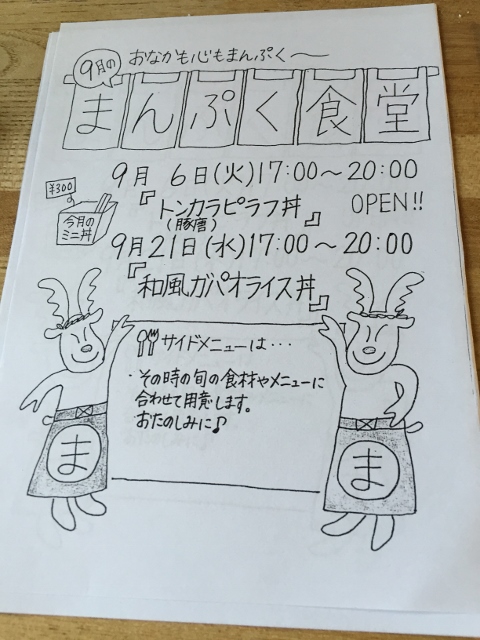 9月の
おなかも心もまんぷく〜
まんぷく食堂
9月 6日(火)17:00〜20:00
¥300
今月の
ミニ丼
『トンカラピラフ丼』
(豚唐)
OPEN!!
9月21日(水)17:00〜20:00
『和風ガパオライス丼』
サイドメニューは・・・
・その時の旬の食材やメニューに
合わせて用意します。
おたのしみに♪
ま
ま